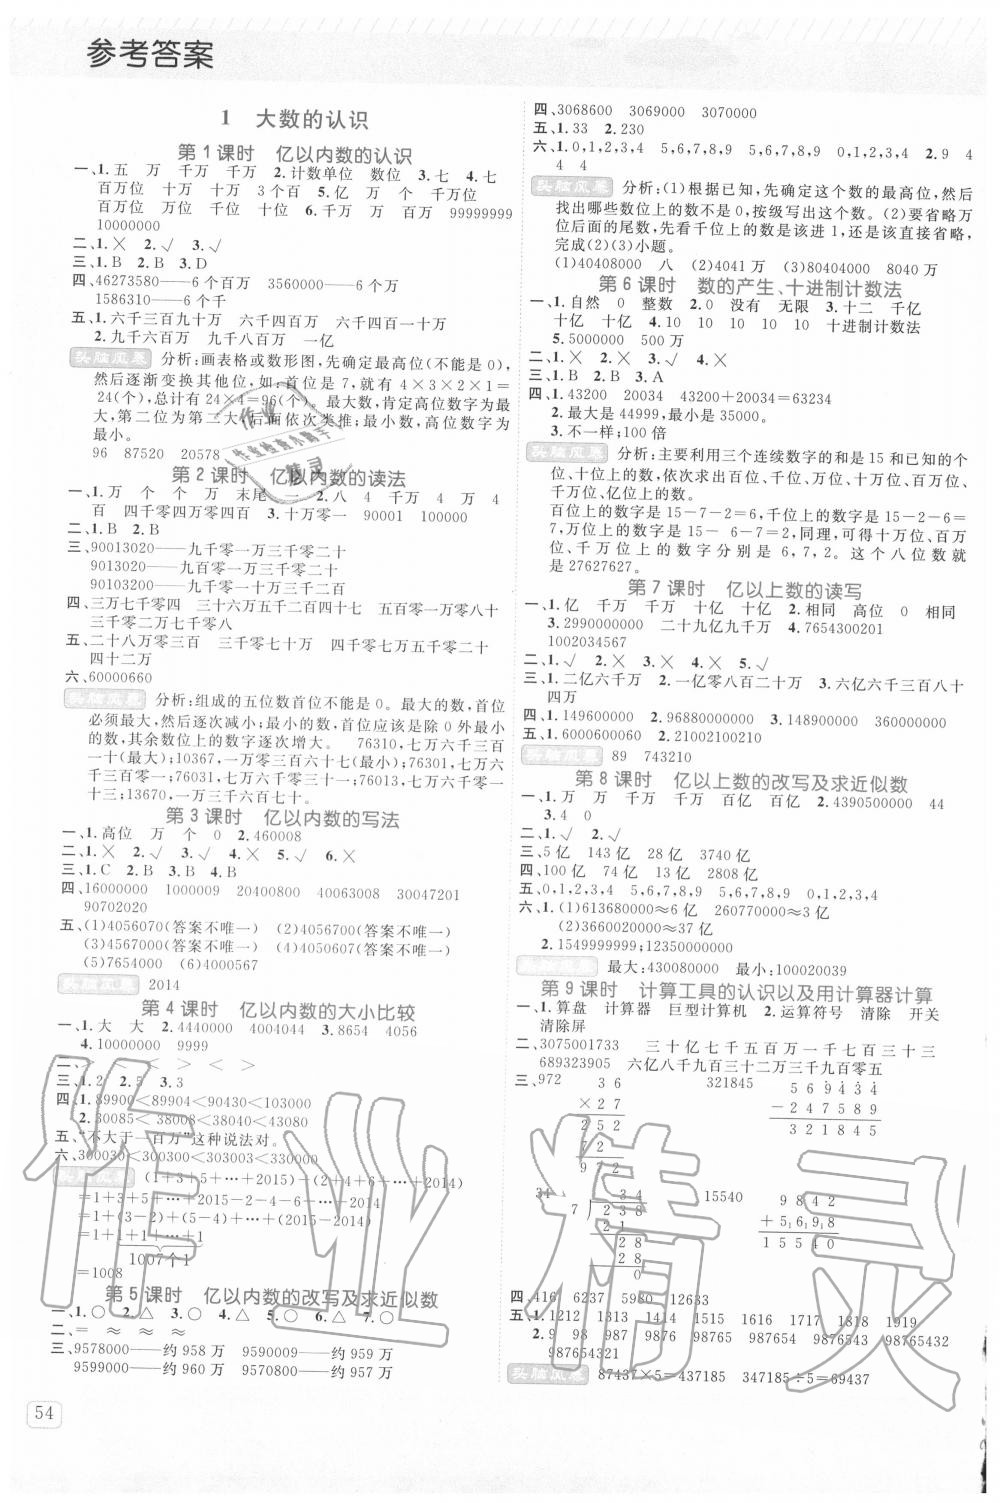 参考答案
1 大数的认识
第1课时 亿以内数的认识
一、1.五 万 千万 千万 2.计数单位 数位 3.七 4.七
百万位 十万 十万 3个百 5.亿 万 个 千万位
百万位 万位 千位 十位 6.千万 万 百万 99999999
10000000
二、1.× 2.√ 3.√
三、1.B 2.B 3.D
四、46273580——6个百万 3560000——6个万
1586310——6个千
五、1.六千三百九十万 六千四百万 六千四百一十万
2.九千六百万 九千八百万 一亿
头脑风暴 分析:画表格或数形图,先确定最高位(不能是0),
然后逐渐变换其他位,如:首位是7,就有4×3×2×1=
24(个),总计有24×4=96(个)。最大数,肯定高位数字为最
大,第二位为第二大,后面依次类推;最小数,高位数字为
最小。
96 87520 20578
第2课时 亿以内数的读法
一、1.万 个 个 万 末尾 一 2.八 4 千万 4 万 4
百 四千零四万零四百 3.十万零一 90001 100000
二、1.B 2.B
三、90013020——九千零一万三千零二十
9013020——九百零一万三千零二十
90103200——九千零一十万三千二百
四、三万七千零四 三十六万五千二百四十六 五百零一万零八十
三千零二万七千零八
五、二十八万零三百 三千零七十万 四千零七万零二十
四十二万
六、60000660
头脑风暴 分析:组成的五位数首位不能是0。最大的数,首位
必须最大,然后逐次减小;最小的数,首位应该是除0外最小
的数,其余数位上的数字逐次增大。 76310,七万六千三百
一十(最大);76001,七万六千零一;76031,
七万六千零三十一;76013,七万六千零一十
三;13670,一万三千六百七十
第3课时 亿以内数的写法
一、1.高位 万 个 0 2.460008
二、1.× 2.√ 3.√ 4.× 5.√ 6.×
三、1.C 2.B 3.B 4.B
四、16000000 1000009 20400800 40063008 30047201
90702020
五、(1)4056070(答案不唯一) (2)4056700(答案不唯一)
(3)4567000(答案不唯一) (4)4050607(答案不唯一)
(5)7654000 (6)4000567
头脑风暴 2014
第4课时 亿以内数的大小比较
一、1.大 大 2.4440000 4004044 3.8654 4056
4.10000000 9999
二、> < < > < >
三、1.2 2.5 3.3
四、1.89900<89904<90430<103000
2.30085<38008<38040<43080
五、“不大于一百万”这种说法对。
六、300030<300300<303003<330000
头脑风暴 (1+3+5+…+2015)-(2+4+6+…+2014)
=1+3+5+…+2015-2-4-6-…-2014
=1+(3-2)+(5-4)+…+(2015-2014)
=1+1+1+…+1
1007个1
=1008
第5课时 亿以内数的改写及求近似数
一、1.○ 2.△ 3.○ 4.○ 5.○ 6.△ 7.○
二、= ≈ ≈ ≈
三、9578000——约958万 9590009——约959万
9599000——约960万 9570000——957万
54
四、3068600 3069000 3070000
五、1.33 2.230
六、1.0,1,2,3,4 5,6,7,8,9 5,6,7,8,9 0,1,2,3,4 2.9 4
4 4
头脑风暴 分析:(1)根据已知,先确定这个数的最高位,然后
找出哪些数位上的数不是0,按级写出这个数。(2)要省略万
位后面的尾数,先看千位上的数是该进1,还是该直接省略,
完成(2)(3)小题。
(1)40408000 八 (2)4041万 (3)80404000 8040万
第6课时 数的产生、十进制计数法
一、1.自然 0 整数 2.0 没有 无限 3.十二 千亿
十亿 十亿 4.10 10 10 10 10 十进制计数法
5.5000000 500万
二、1.× 2.× 3.√ 4.×
三、1.B 2.B 3.A
四、1.43200 20034 43200+20034=63234
2.最大是44999,最小是35000。
3.不一样;100倍
头脑风暴 分析:主要利用三个连续数字的和是15和已知的个
位、十位上的数,依次求出百位、千位、万位、十万位、百万位、
千万位、亿位上的数。
百位上的数字是15-7-2=6,千位上的数字是15-2-6=
7,万位上的数字是15-6-7=2,同理,可得十万位、百万
位、千万位上的数字分别是6,7,2。这个八位数就
是27627627。
第7课时 亿以上数的读写
一、1.亿 千万 千万 十亿 十亿 2.相同 高位 0 相同
3.2990000000 二十九亿九千万 4.7654300201
1002034567
二、1.√ 2.× 3.× 4.√ 5.√
三、1.二亿六千万 2.一亿零八百二十万 3.六亿六千三百八十
四万
四、1.149600000 2.96880000000 3.148900000 360000000
五、1.6000600060 2.21002100210
头脑风暴 89 743210
第8课时 亿以上数的改写及求近似数
一、1.万 千万 千万 千万 百亿 百亿 2.4390500000 44
3.4 0
二、1.√ 2.√
三、5亿 143亿 28亿 3740亿
四、100亿 74亿 13亿 2808亿
五、0,1,2,3,4 5,6,7,8,9 5,6,7,8,9 0,1,2,3,4
六、1.(1)613680000≈6亿 260770000≈3亿
(2)3660020000≈37亿
2.1549999999;12350000000
头脑风暴 最大:430080000 最小:100020039
第9课时 计算工具的认识以及用计算器计算
一、1.算盘 计算器 巨型计算机 2.运算符号 清除 开关
清除屏
二、3075001733 三十亿七千五百万一千七百三十三
689323905 六亿八千九百三十二万三千九百零五
三、972 36 321845 569434
×27 -247589
252 321845
72
972
34 34 15540 9842
7)238 +5698
21 15540
28
28
0
四、416 6237 5980 12633
五、1.1212 1313 1414 1515 1616 1717 1818 1919
2.9 98 987 9876 98765 987654 9876543 98765432
987654321
头脑风暴 87437×5=437185 347185÷5=69437
作业精灵
作业检查小助手
作业精灵